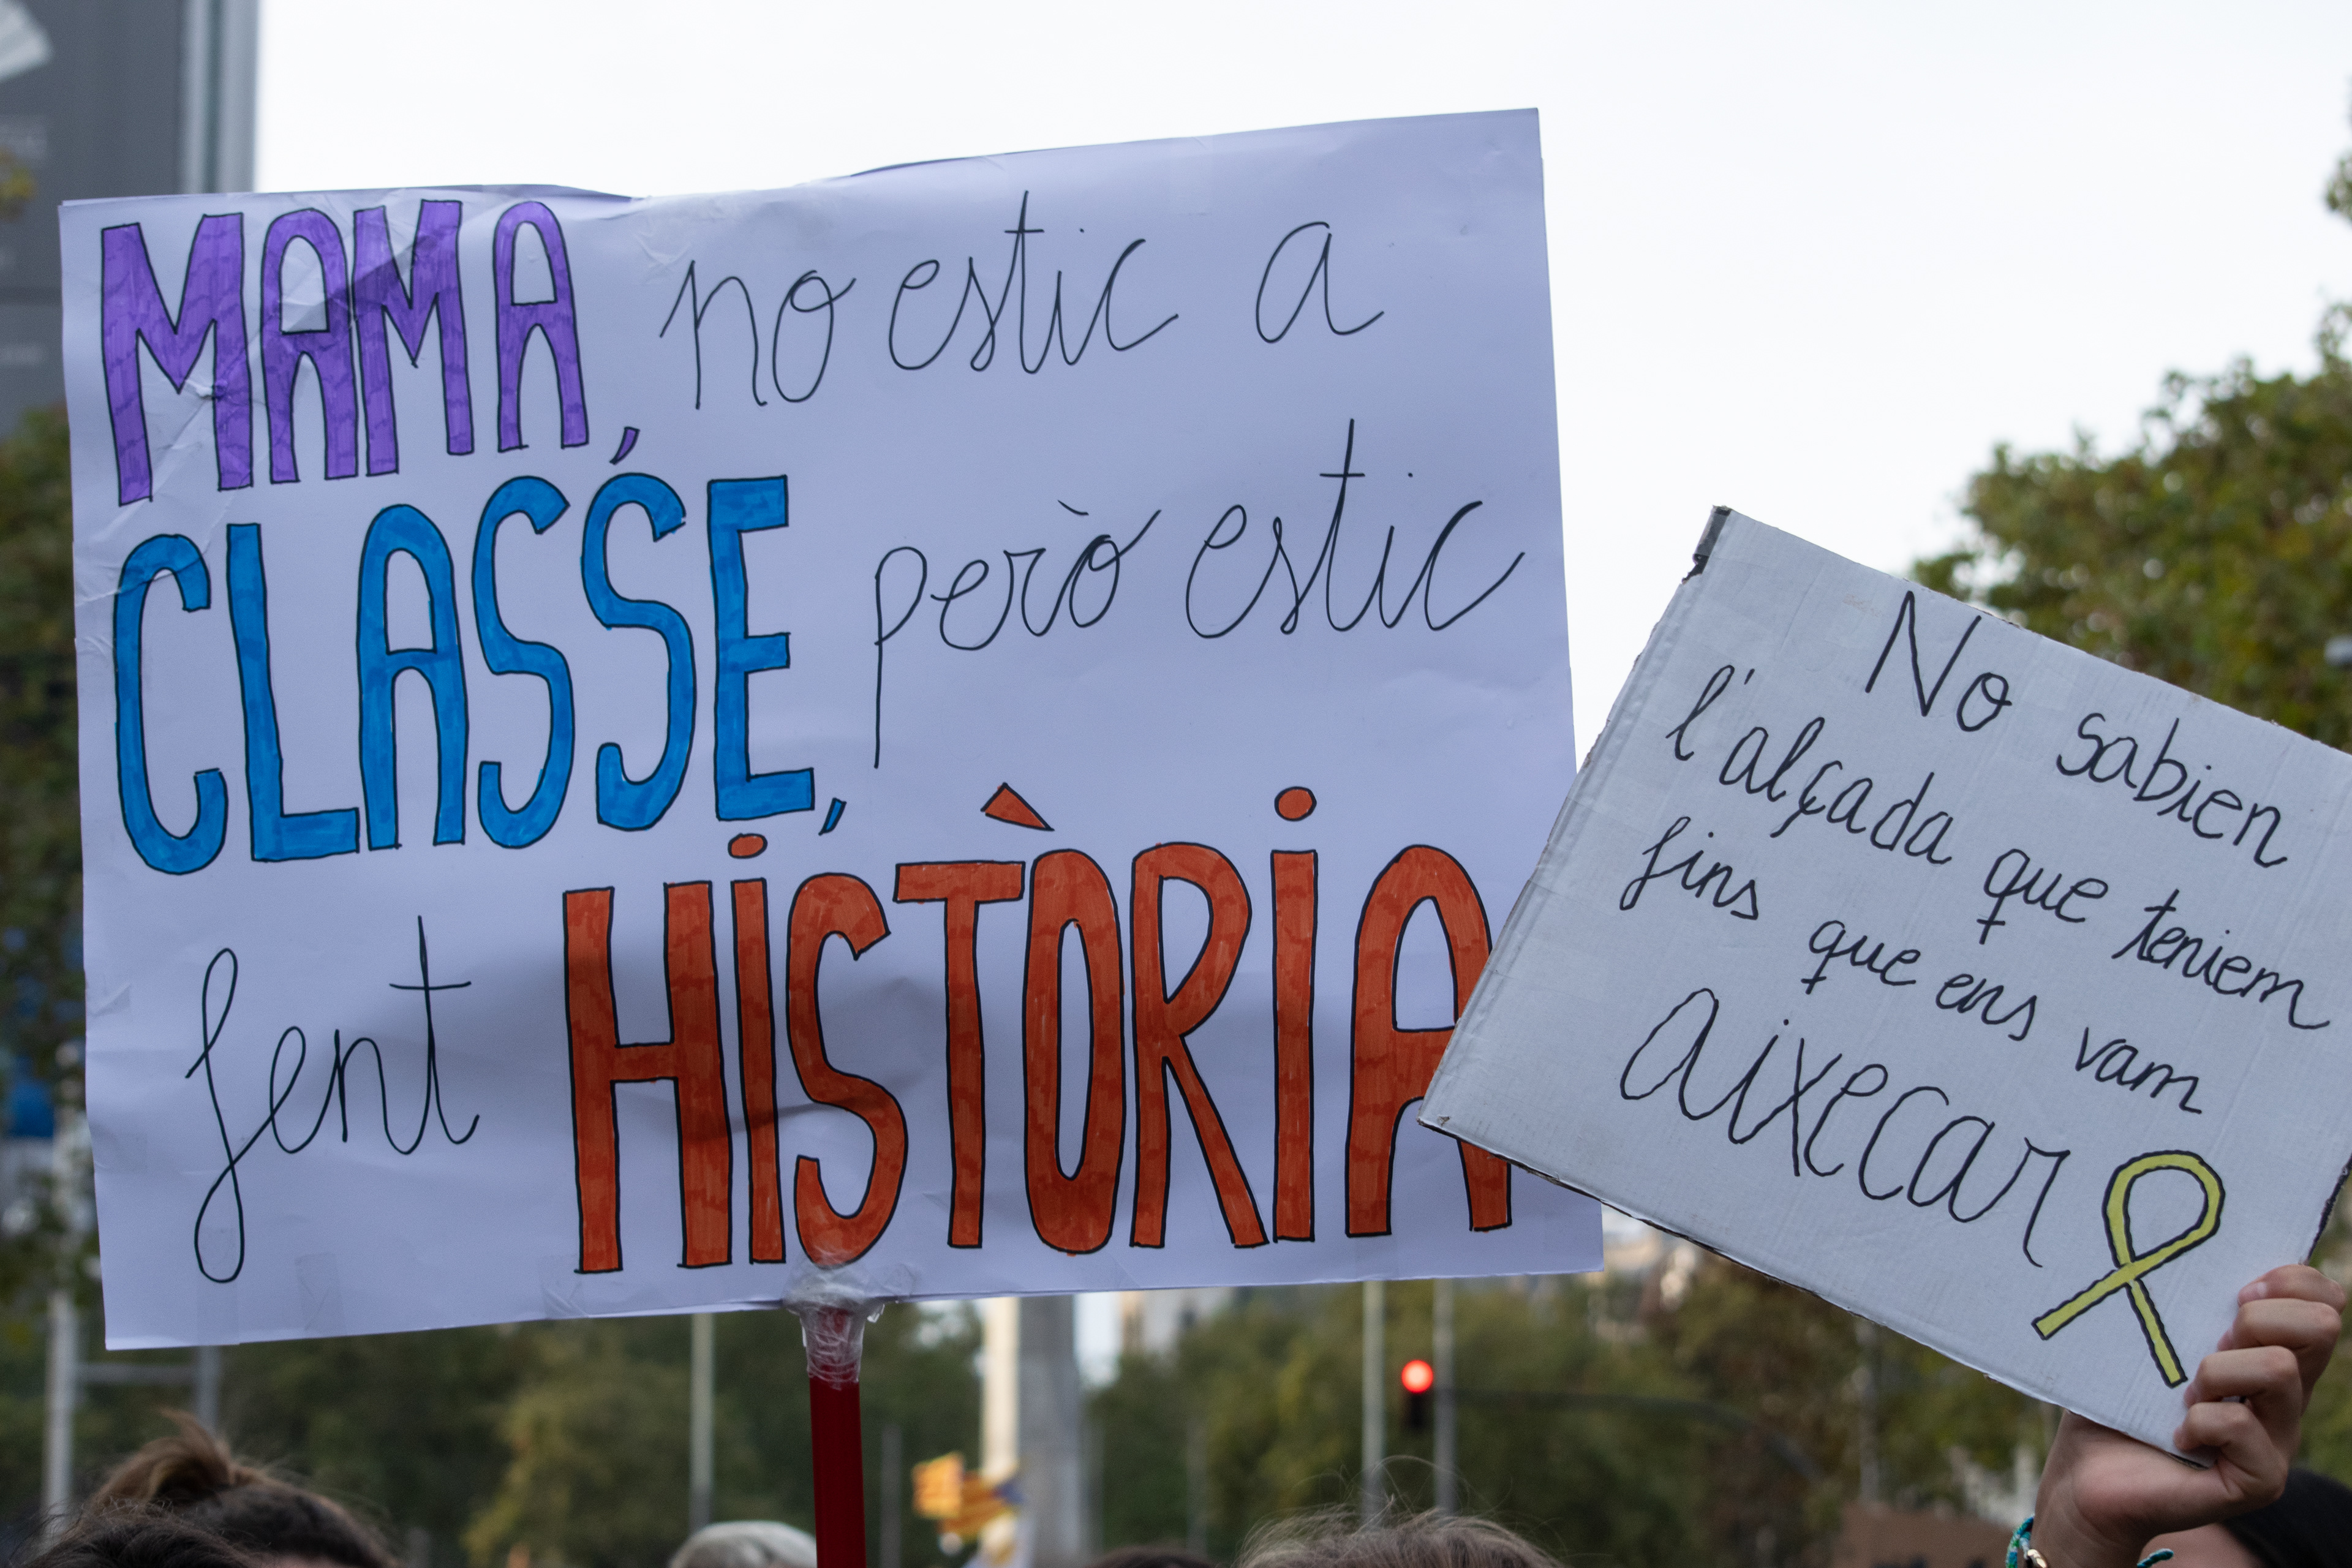 MAMA, no estic a
CLASSE, però estic
fent HiSTÒRiA
No sabien
l'alçada que teniem
fins que ens vam
aixecar